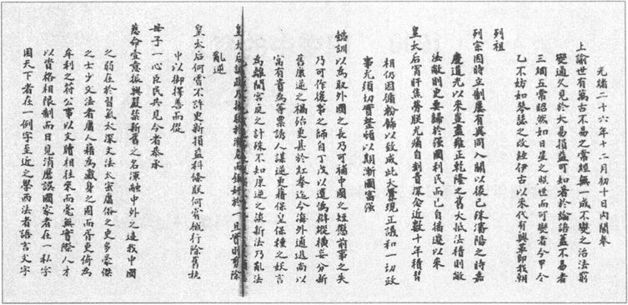 光緒二十六年十二月初十日內閣奉
上諭世有萬古不易之常經無一成不變之治法窮
變通久見於大易損益可知著於論語蓋不易者
三綱五常昭然如日星之照世而可變者令甲令
乙不妨如琴瑟之改絃伊古以來代有興革即我朝
列祖
列宗因時立制屢有異同入關以後已殊瀋陽之時嘉
慶道光以來豈盡雍正乾隆之舊大抵法積則敝
法敝則更要歸於強國利民而已自播遷以來
皇太后宵旰焦勞朕尤痛自刻責深念近數十年積習
相仍因循粉飾以致成此大釁現正議和一切政
事尤須切實整頓以期漸圖富強
懿訓以為取外國之長乃可補中國之短懲前事之失
乃可作後事之師自丁戊以還偽辯縱橫妄分新
舊康逆之禍殆更甚於紅拳迄今海外逋逃尚以
富有貴為等票誘人謀逆更藉保皇保種之妖言
為離間宮廷之計殊不知康逆之談新法乃亂法
皇太后訓政乃拯朕於瀕危而鋤奸於一旦實則剪除
亂逆
皇太后何嘗不許更新損益科條朕何嘗概行除舊執
中以御擇善而從
母子一心臣民共見今者恭承
慈命壹意振興嚴禁新舊之名渾融中外之迹我中國
之弱在於習氣太深文法太密庸俗之吏多豪傑
之士少文法者庸人藉為藏身之固而胥吏倚為
牟利之符公事以文牘相往來而毫無實際人才
以資格相限制而日見消磨誤國家者在一私字
困天下者在一例字至近之學西法者語言文字